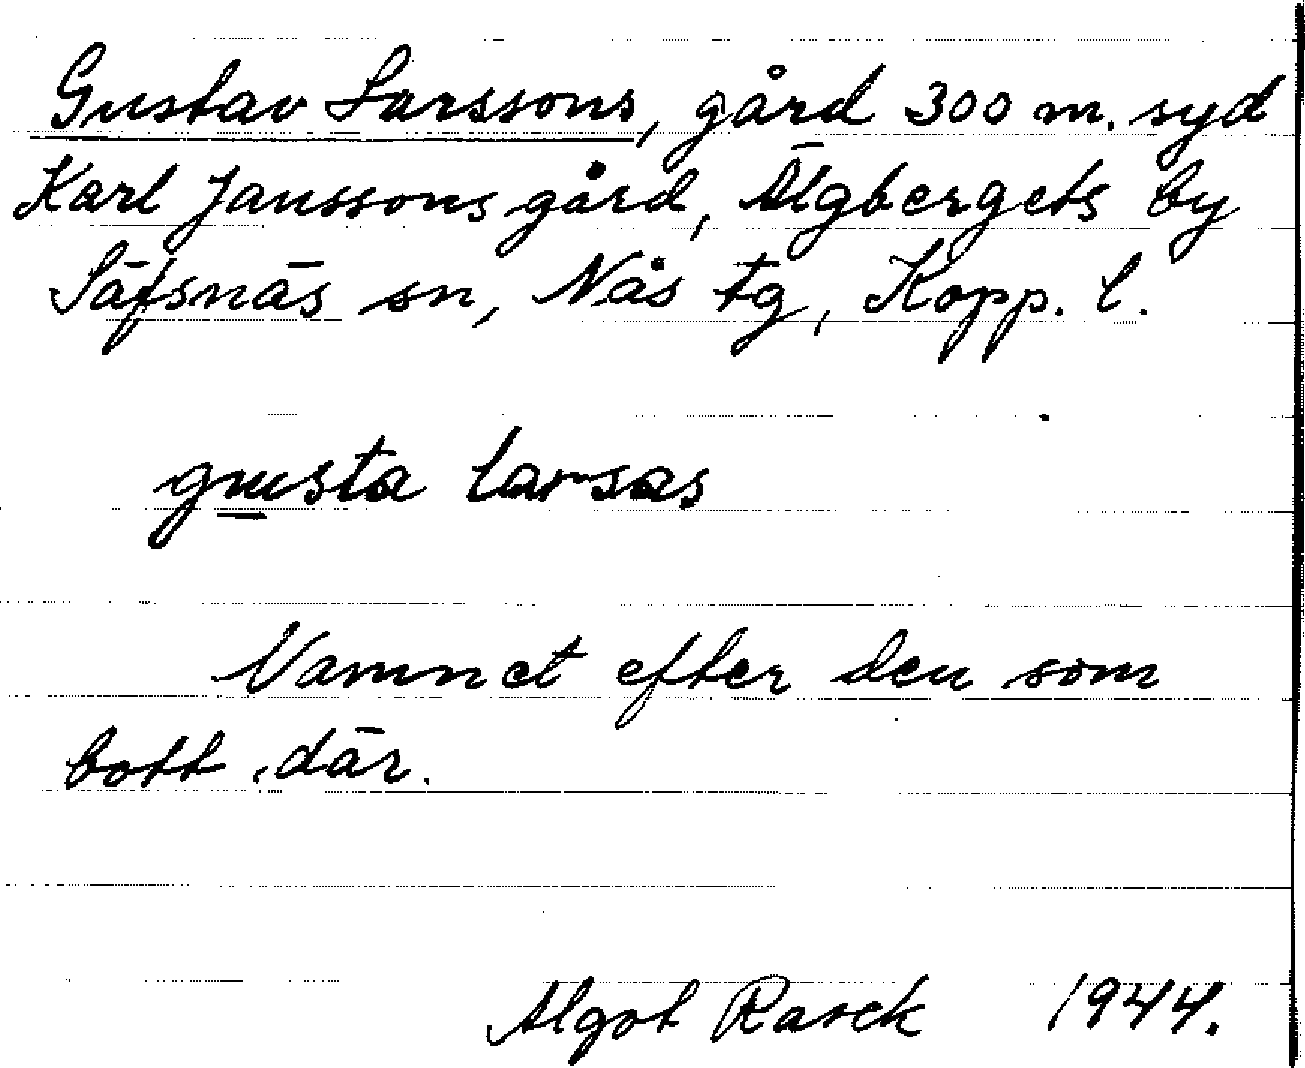 Gustav Larssons, gård 300 m. syd
Karl Janssons gård, Älgbergets by
Säfsnäs sn, Nås tg, Kopp. l.
gusta larsas
Namnet efter den som
bott där.
Algot Rasck 1944.